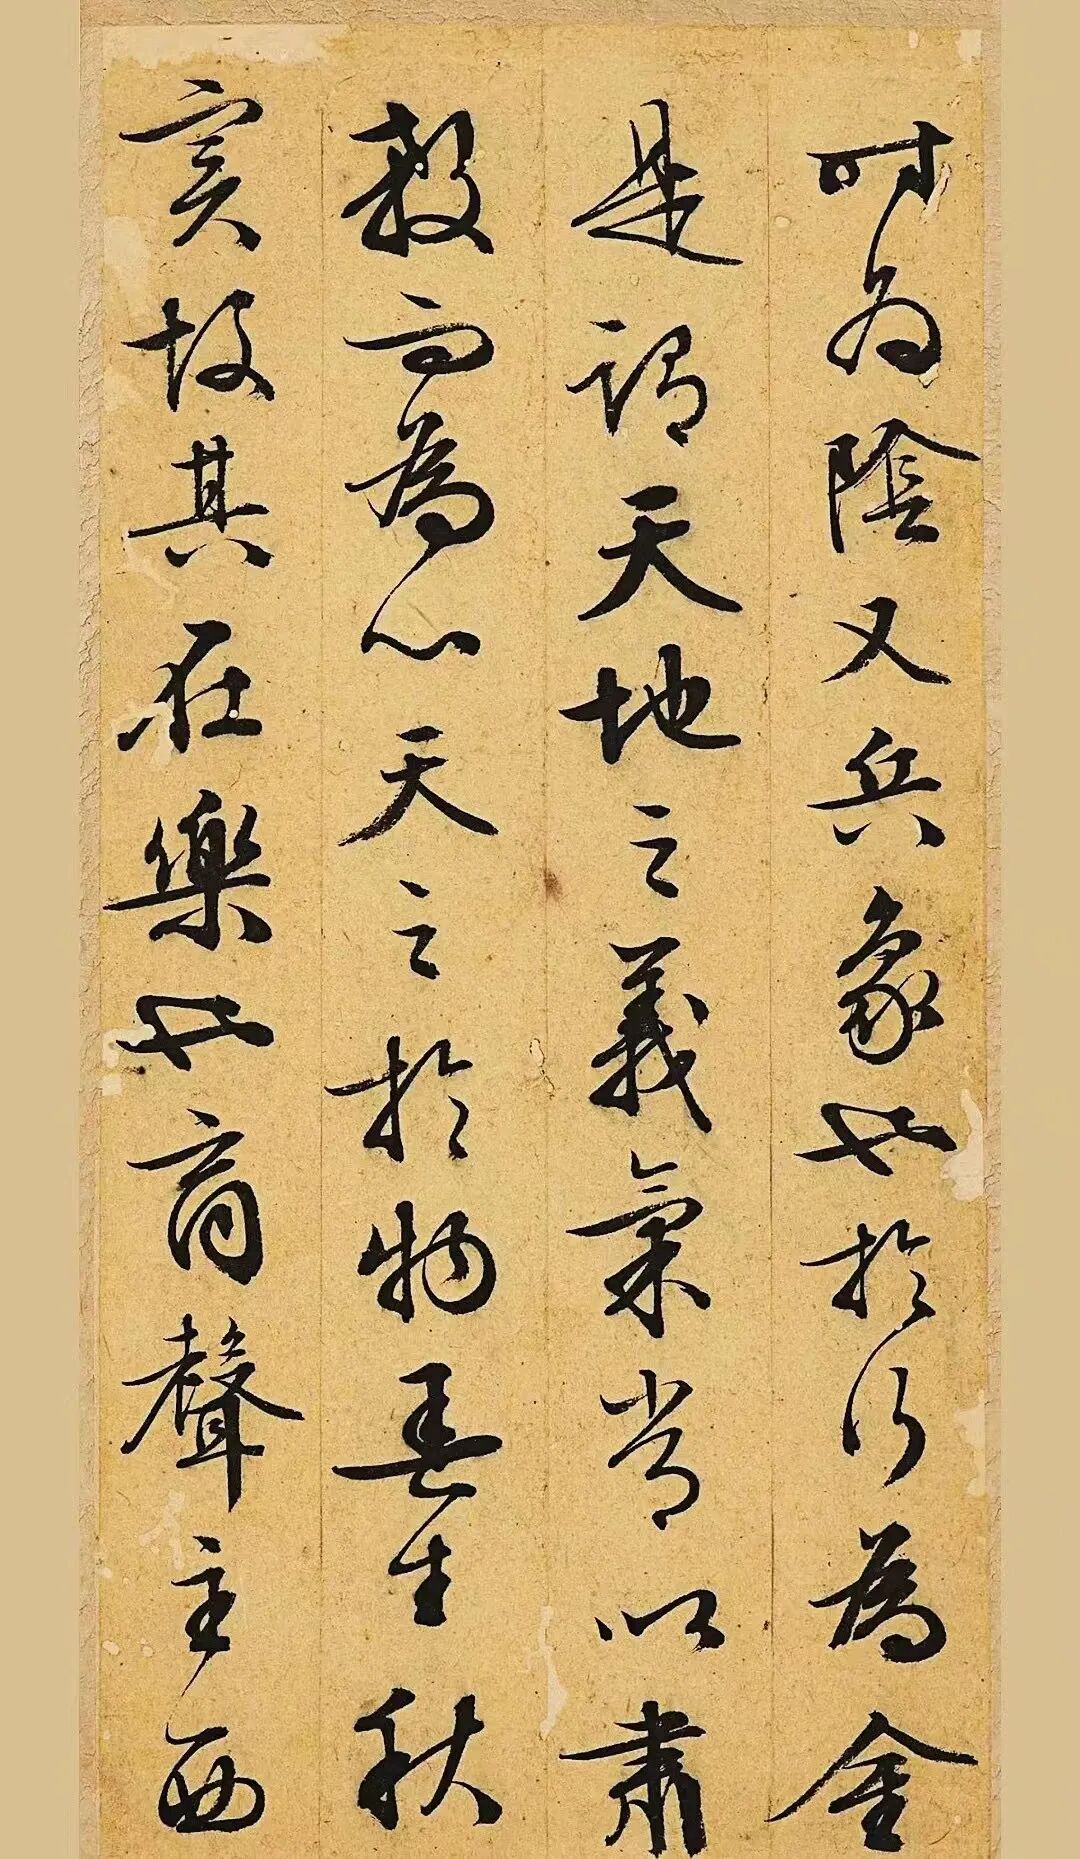 时为陰又兵象也於行為金
是謂天地之義氣常以肅
殺而為心天之於物春生秋
實故其在樂也商聲主西